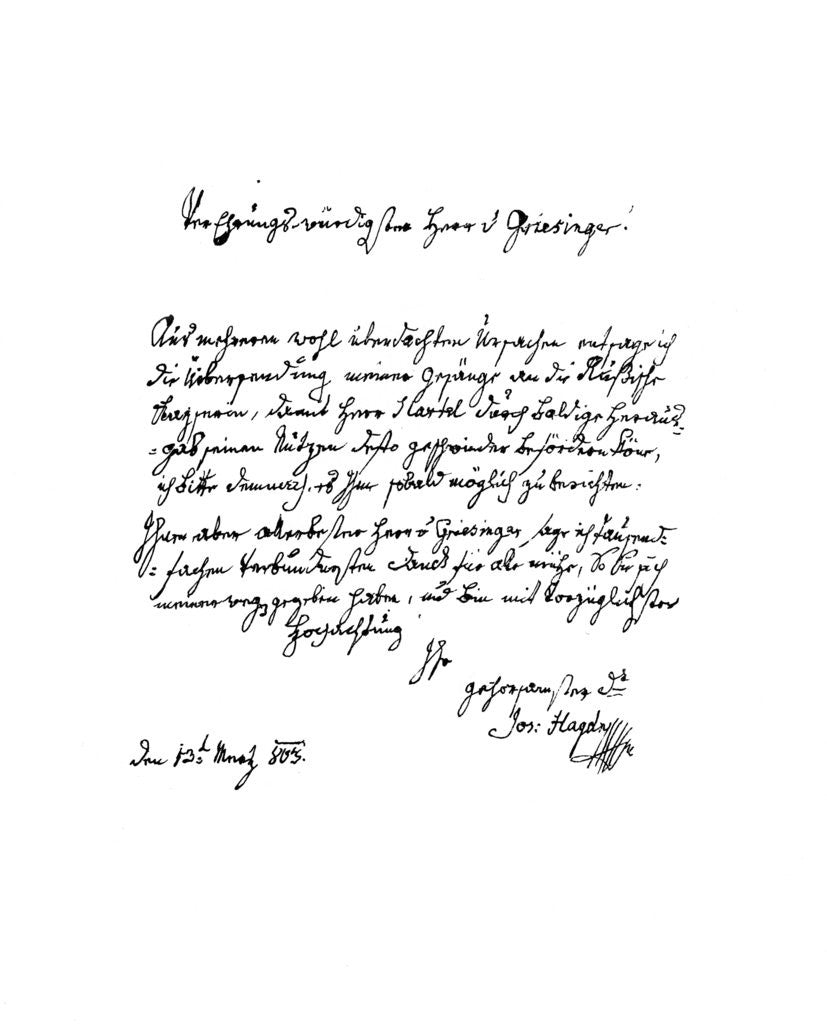 VerEhrungs-würdigster Herr v Griesinger!
Aus mehreren wohl überdachten Ursachen entsage ich
die Übersendung meiner Gesänge an die Rußische
Kayserin, damit Herr Hartel durch baldige Heraus=
=gab seinen Nutzen desto geschwinder befördern köne,
ich bitte demnach es Ihm sobald möglich zu berichten:
Ihnen aber allerbester Herr v Griesinger sage ich tausend=
=fachen verbundensten Danck für alle mühe, So Sie sich
meinerweg gegeben haben, und bin mit vorzüglichster
Hochachtung
Ihr
gehorsamster Dr
Jos: Haydn
den 13t Merz 803.